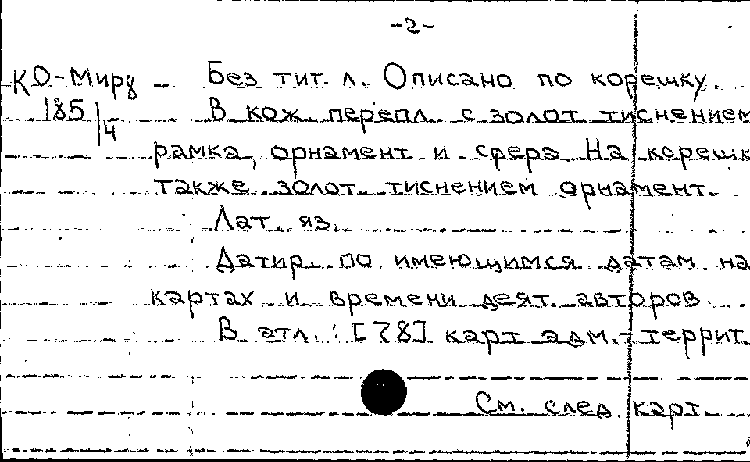 -2-
КО-Мир 8 - Без тит. л. Описано по корешку.
185/4 В кож. перепл. с золот тиснением
рамка, орнамент и сфера На корешк
также золот. тиснением орнамент.
Лат. яз.
Датир. по имеющимся датам на
картах и времени деят. авторов
В атл. : [78] карт адм.-террит.
См. след. карт.